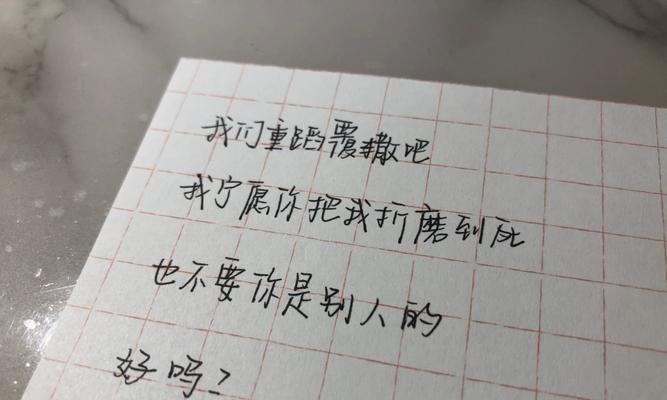 我们重蹈覆撤吧
我宁愿你把我折磨到死
也不要你是别人的
好吗?